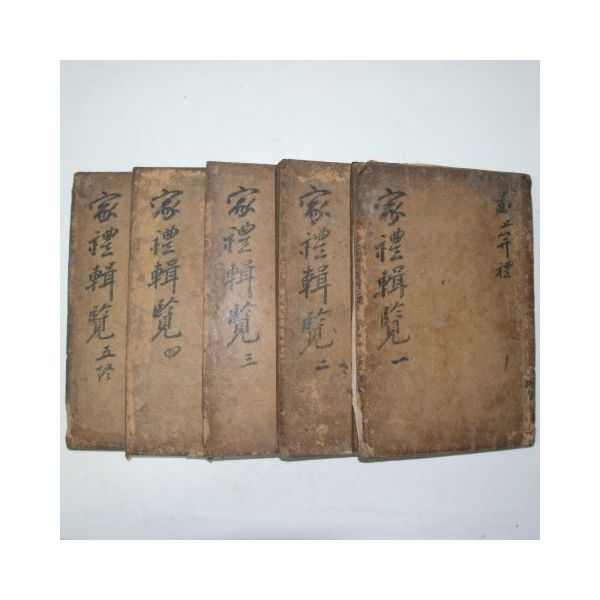 家禮輯覽 一
家禮輯覽 二
家禮輯覽 三
家禮輯覽 四
家禮輯覽 五終